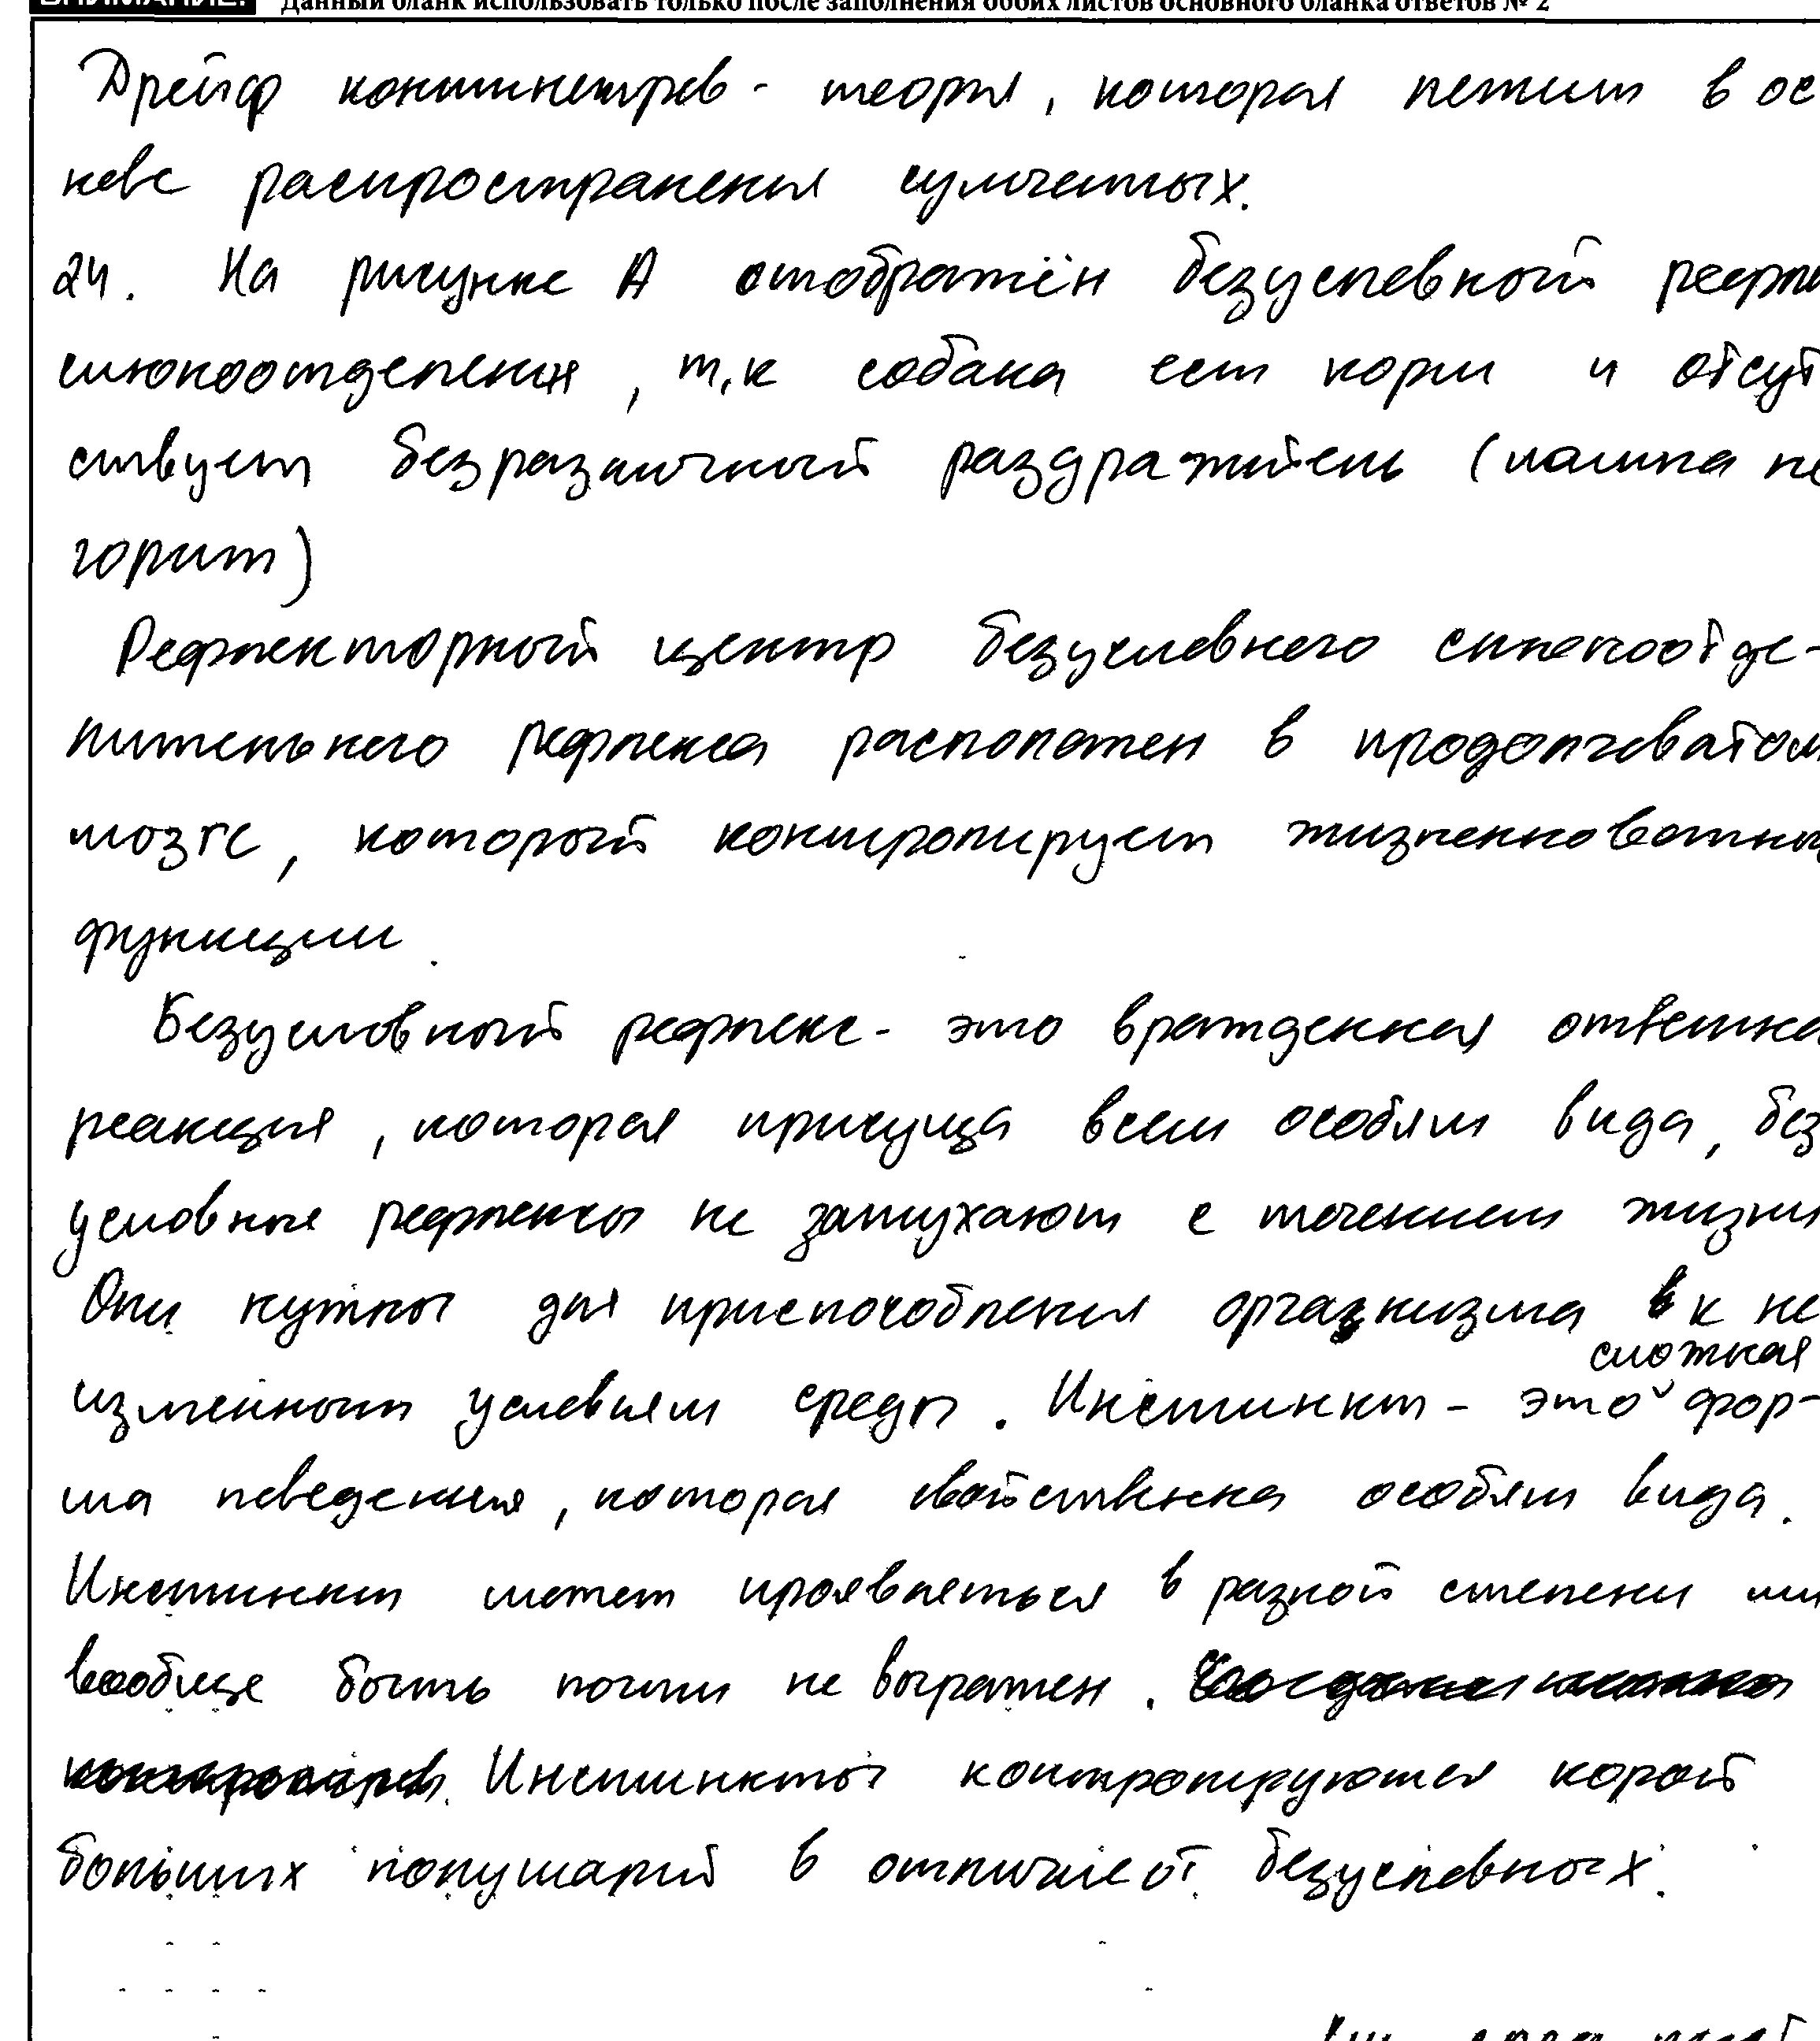 ВНИМАНИЕ! Данный бланк использовать только после заполнения обоих листов основного бланка ответов № 2
Дрейф континентов - теория, которая лежит в ос
нове распространения сумчатых.
24. На рисунке А отображён безусловный рефл
слюноотделения, т.к собака ест корм и отсут
ствует безразличный раздражитель (лампа не
горит)
Рефлекторный центр безусловного слюноотде-
лительного рефлекса расположен в продолговатом
мозге, который контролирует жизненноважны
функции.
Безусловный рефлекс - это врожденная ответна
реакция, которая присуща всем особям вида, без
условные рефлексы не затухают с течением жизни
Они нужны для приспособления организма к не
сложная
изменным условиям среды. Инстинкт - это фор-
ма поведения, которая свойственна особям вида.
Инстинкт может проявляться в разной степени или
вообще быть почти не выражен.
Инстинкты контролируются корой
больших полушарий в отличие от безусловных.